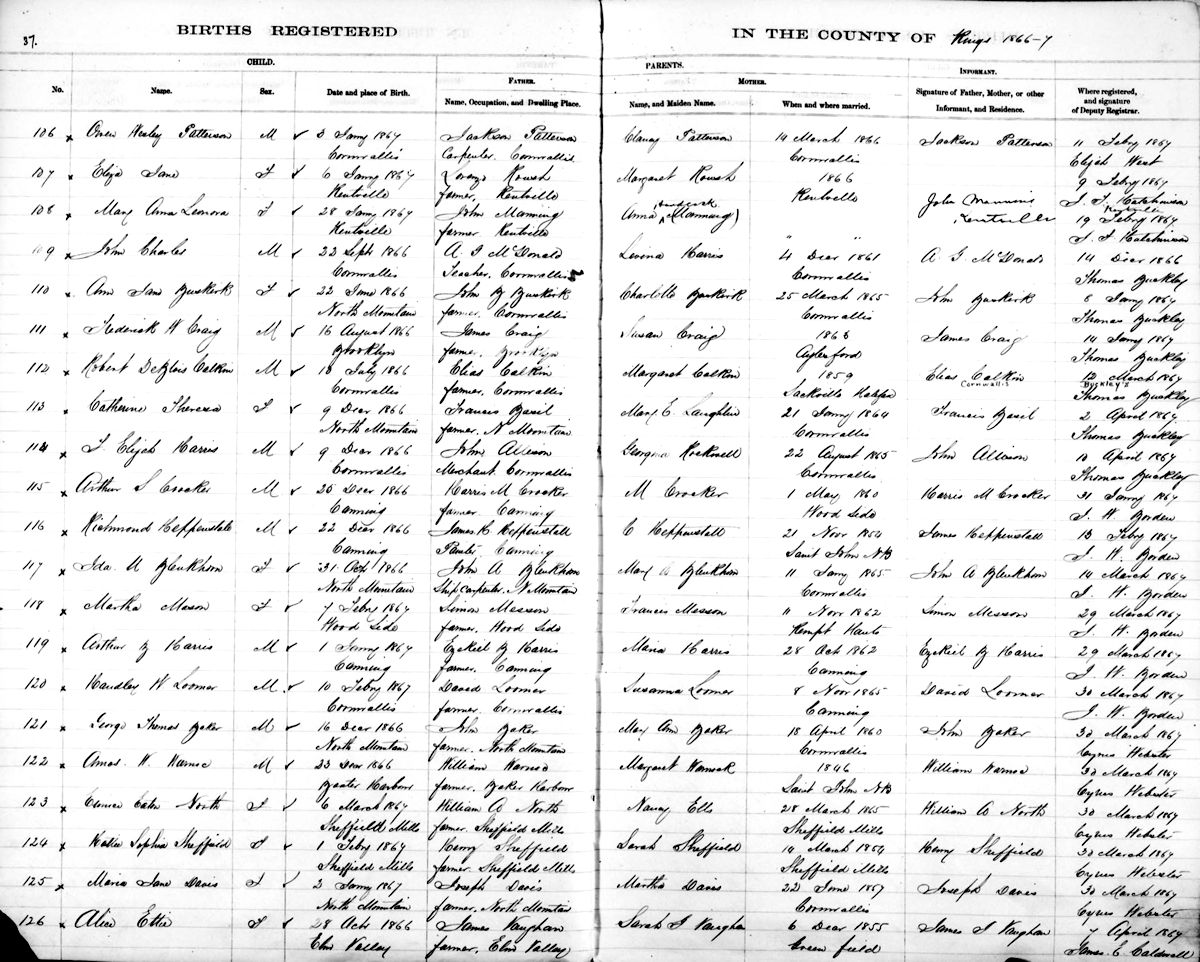 37.
BIRTHS REGISTERED IN THE COUNTY OF Kings 1866-7
CHILD. PARENTS.
FATHER. MOTHER. INFORMANT.
No. Name. Sex. Date and place of Birth. Name, Occupation, and Dwelling Place. Name, and Maiden Name. When and where married. Signature of Father, Mother, or other Informant, and Residence. Where registered, and signature of Deputy Registrar.
106 x Owen Wesley Patterson M 3 Jany 1867 Jackson Patterson Patterson 14 March 1866 Jackson Patterson 11 Febry 1867
Cornwallis Carpenter. Cornwallis Cornwallis Elijah West
107 x Eliza Jane F 6 Jany 1867 Margaret 1866 9 Febry 1867
Kentville farmer, Kentville Kentville Hutchinson
108 x Mary Anna Lenora F 28 Jany 1867 John Manning Anna (Manning) John Manning 19 Febry 1867
Kentville farmer Kentville " " Kentville Hutchinson
109 x John Charles M 22 Sept 1866 A G McDonald Levena Harris 4 Decr 1861 A G McDonald 14 Decr 1866
Cornwallis Teacher, Cornwallis Cornwallis Thomas Buckley
110 x Ann Jane Buskirk F 22 June 1866 John B Buskirk Charlotte Buskirk 25 March 1865 John Buskirk 8 Jany 1867
North Mountain farmer. Cornwallis Cornwallis Thomas Buckley
111 x Frederick W Craig M 16 August 1866 James Craig Susan Craig James Craig 14 Jany 1867
Brooklyn farmer. Brooklyn Aylesford Thomas Buckley
112 x Robert DeBlois Calkin M 18 July 1866 Elias Calkin Margaret Calkin 1859 Elias Calkin 12 March 1867
Cornwallis farmer, Cornwallis Sackville Halifax Cornwallis Buckley's Thomas Buckley
113 x Catherine Theresa F 9 Decr 1866 Francis Basil Mary E. Laughlin 21 Jany 1864 Francis Basil 2 April 1867
North Mountain farmer. N Mountain Cornwallis Thomas Buckley
114 x Elijah Harris M 9 Decr 1866 John Allison Georgina Rockwell 22 August 1865 John Allison 10 April 1867
Cornwallis Merchant. Cornwallis Cornwallis Thomas Buckley
115 x Arthur S Crocker M 25 Decr 1866 Harris M Crocker M Crocker 1 May 1860 Harris M Crocker 31 Jany 1867
Canning farmer. Canning Wood Side J. W. Borden
116 x Richmond Heppenstall M 22 Decr 1866 James Heppenstall C Heppenstall 21 Novr 1854 James Heppenstall 13 Febry 1867
Canning Painter, Canning Saint John NB J. W. Borden
117 x Ida Blenkhorn F 31 Oct 1866 John A Blenkhorn Mary A Blenkhorn 11 Jany 1865 John A Blenkhorn 14 March 1867
North Mountain Ship Carpenter. N Mountain Cornwallis J. W. Borden
118 x Martha Mason F 7 Febry 1867 Simon Messon Frances Messon 11 Novr 1862 Simon Messon 29 March 1867
Wood Side farmer. Wood Side Kempt Hants J. W. Borden
119 x Arthur B Harris M 1 Jany 1867 Ezekiel B Harris Maria Harris 28 Oct 1862 Ezekiel B Harris 29 March 1867
Canning farmer. Canning Canning J. W. Borden
120 x Handley W Loomer M 10 Febry 1867 David Loomer Susanna Loomer 8 Novr 1865 David Loomer 30 March 1867
Cornwallis farmer. Cornwallis Canning J. W. Borden
121 x George Thomas Baker M 16 Decr 1866 John Baker Mary Ann Baker 18 April 1860 John Baker 30 March 1867
North Mountain farmer. North Mountain Cornwallis Cyrus Webster
122 x Amos W. M 23 Decr 1866 William Margaret 1846 William 30 March 1867
Baxter Harbour farmer. Baker Harbour Saint John NB Cyrus Webster
123 x Eunice Eaton North F 6 March 1867 William A North Nancy Ells 28 March 1865 William A North 30 March 1867
Sheffield Mills farmer. Sheffield Mills Sheffield Mills Cyrus Webster
124 x Hattie Sophia Sheffield F 1 Febry 1867 Henry Sheffield Sarah Sheffield 14 March 1854 Henry Sheffield 30 March 1867
Sheffield Mills farmer. Sheffield Mills Sheffield Mills Cyrus Webster
125 x Maria Jane Davis F 2 Jany 1867 Joseph Davis Martha Davis 22 June 1857 Joseph Davis 30 March 1867
North Mountain farmer, North Mountain Cornwallis Cyrus Webster
126 x Alice Ettie F 28 Oct 1866 James Vaughan Sarah J Vaughan 6 Decr 1855 James S Vaughan 7 April 1867
Elm Valley farmer. Elm Valley Green field James E. Caldwell